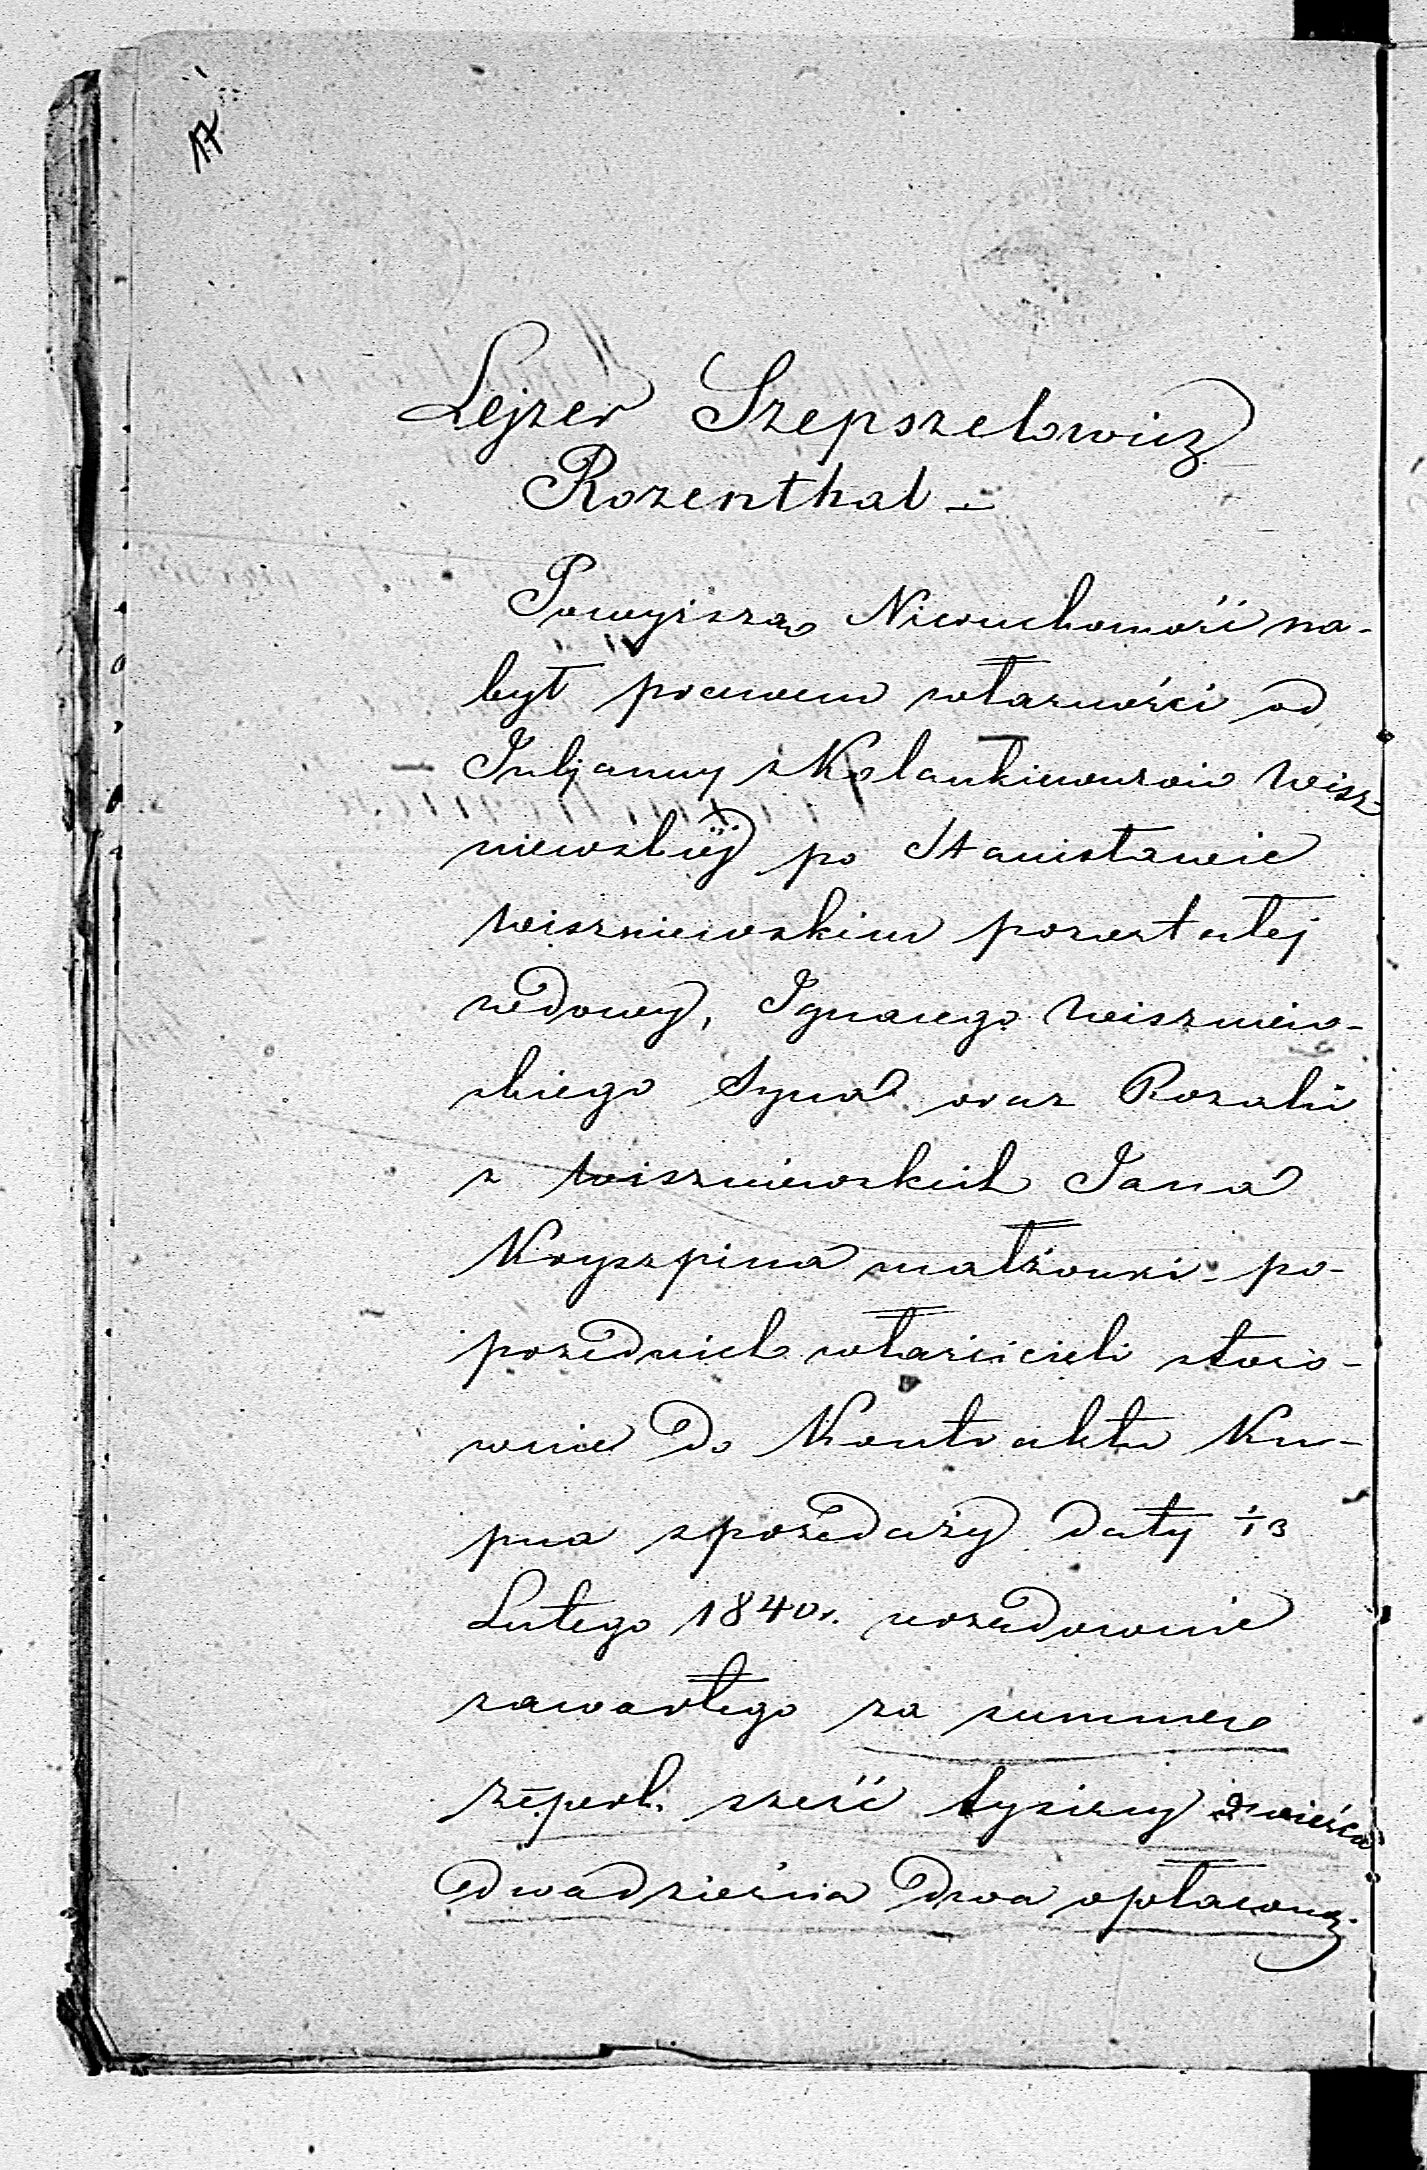 17
Lejzer Szepszelowicz
Rozenthal -
Powyższą Nieruchomość na-
był prawem własności od
Juljanny z Kolankiewiczów Wisz-
niewskiéj po Stanisławie
Wiszniewskim pozostałej
wdowy, Ignacego Wiszniew-
skiego Syna oraz Rozalii
z Wiszniewskich Jana
Kryszpina małżonki - po-
przednich właścicieli stoso-
wnie do Kontraktu Ku-
pna sprzedaży daty 1/13
Lutego 1840 r. urzędownie
zawartego za summę
złp. sześć tysięcy dwieście
dwadzieścia dwa opłaconą.